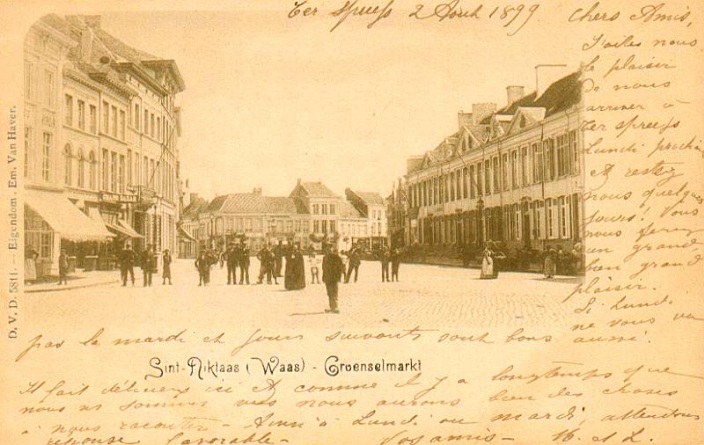 Ter Speeff 2 Août 1899
chers Amis,
faites nous
le plaisir
de nous
arriver à
Ter Speeff
Lundi prochain
et restez
nous quelques
jours! Vous
nous ferez
un grand
bon grand
plaisir.
Si Lundi
ne vous va
pas le mardi et jours suivants sont bons aussi!
Sint-Niklaas (Waas) - Groenselmarkt
Il fait délicieux ici et comme il y a longtemps que
nous ne sommes vus nous aurons bien des choses
à nous raconter - Ainsi à Lundi ou mardi, attendons
réponse favorable - Vos amis -
D. V. D. 5811. — Eigendom. Em. Van Haver.